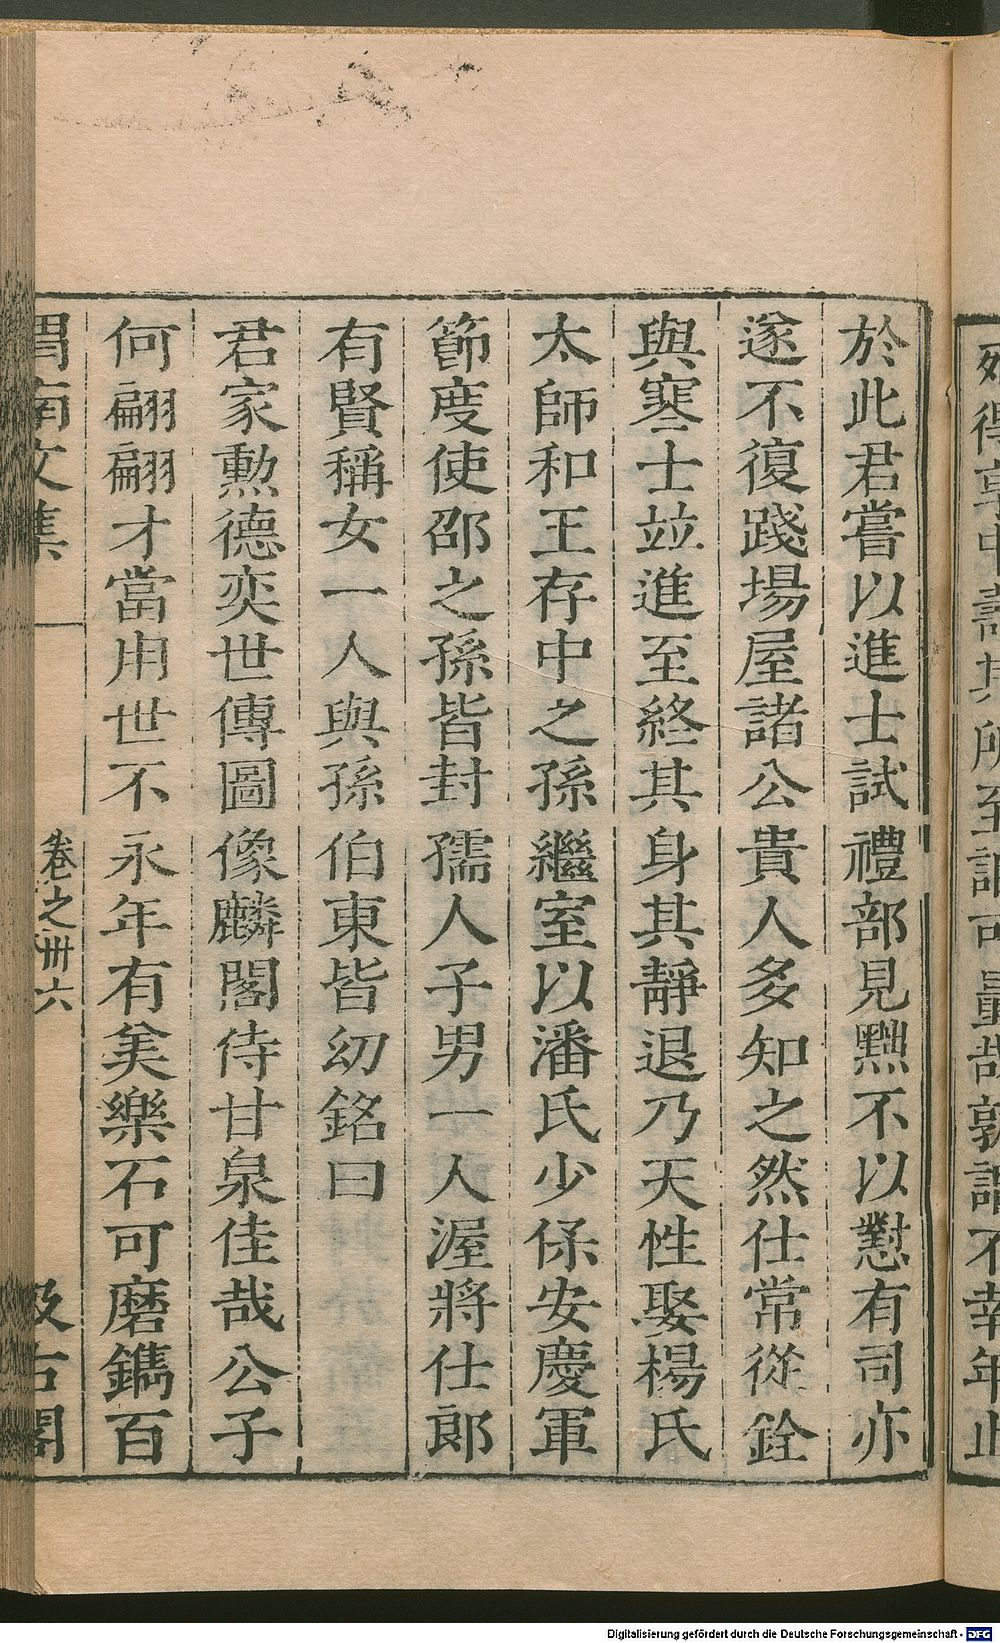 於此君嘗以進士試禮部見黜不以懟有司亦
遂不復踐場屋諸公貴人多知之然仕常從銓
與寒士並進至終其身其靜退乃天性娶楊氏
太師和王存中之孫繼室以潘氏少保安慶軍
節度使邵之孫皆封孺人子男一人渥將仕郎
有賢稱女一人與孫伯東皆幼銘曰
君家勲德奕世傳圖像麟閣侍甘泉佳哉公子
何翩翩才當用世不永年有美樂石可磨鐫百
渭南文集
卷之卌六
汲古閣
Digitalisierung gefördert durch die Deutsche Forschungsgemeinschaft - DFG